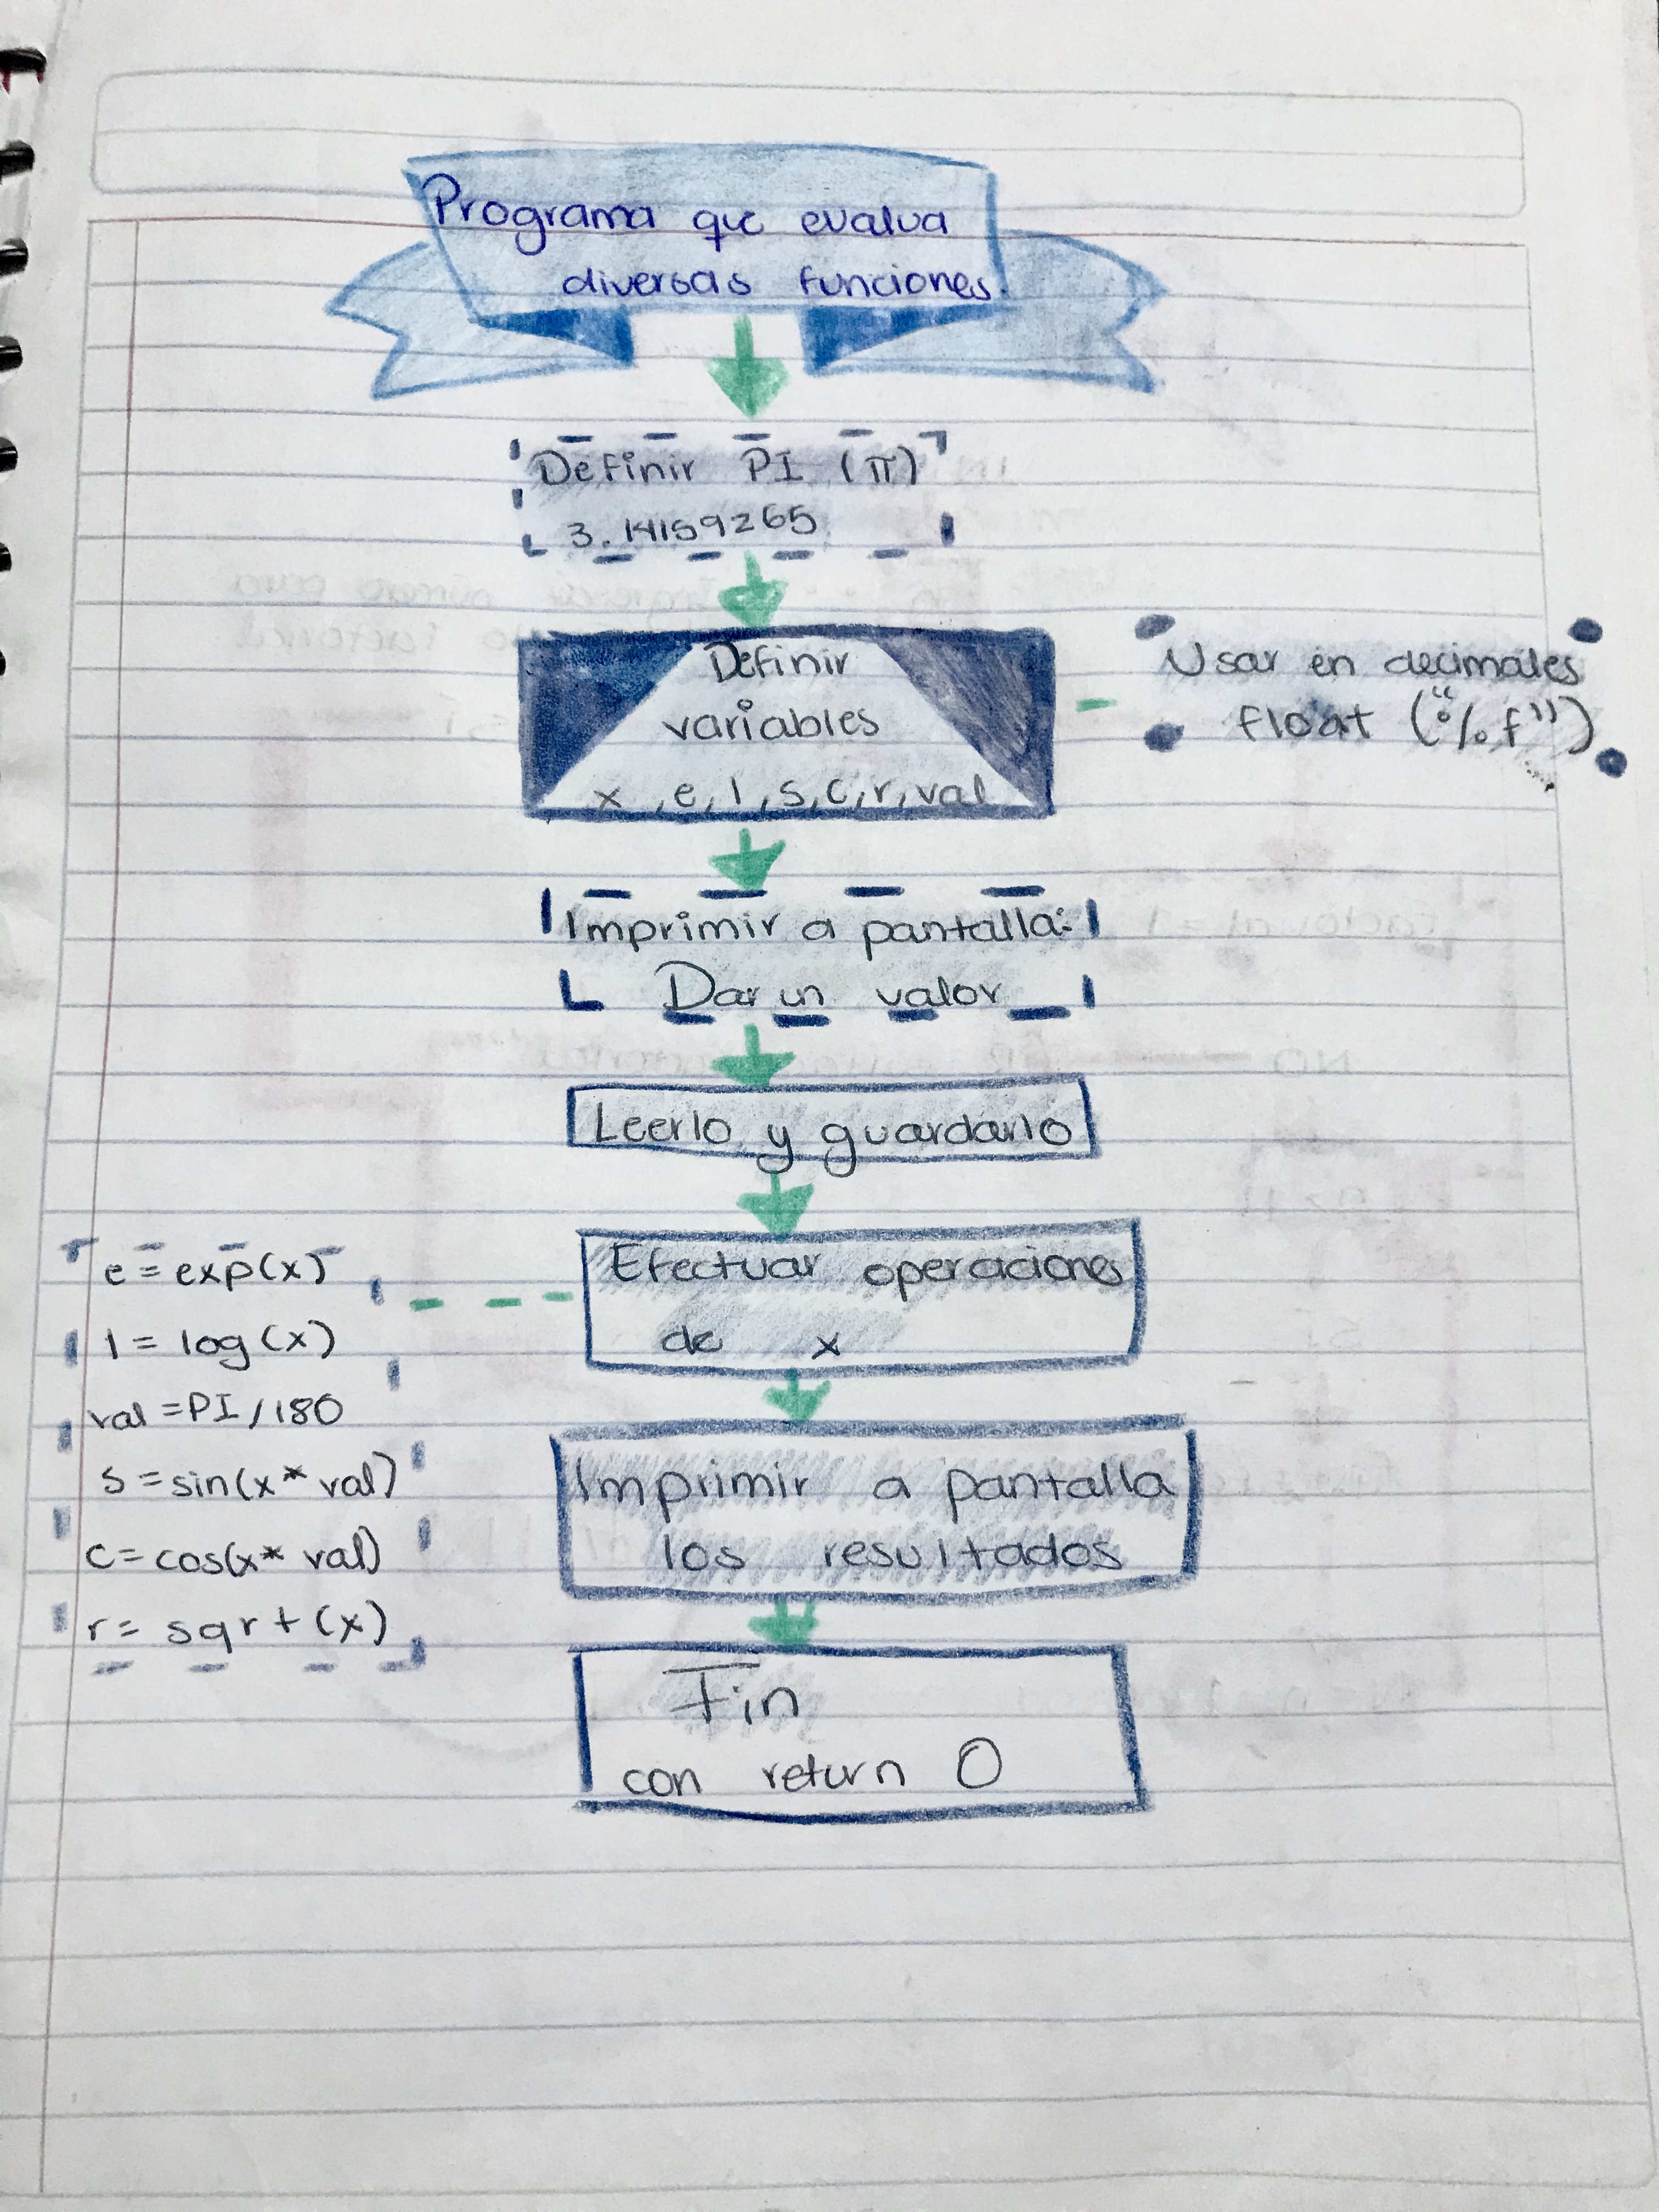 Programa que evalua
diversas funciones.
Definir PI (π)
3.14159265
Definir
variables
x, e, l, s, c, r, val
Usar en decimales
float ("%f")
Imprimir a pantalla:
Dar un valor
Leerlo y guardarlo
Efectuar operaciones
de x
e = exp(x)
l = log(x)
val = PI/180
s = sin(x* val)
c = cos(x* val)
r = sqrt(x)
Imprimir a pantalla
los resultados
Fin
con return 0